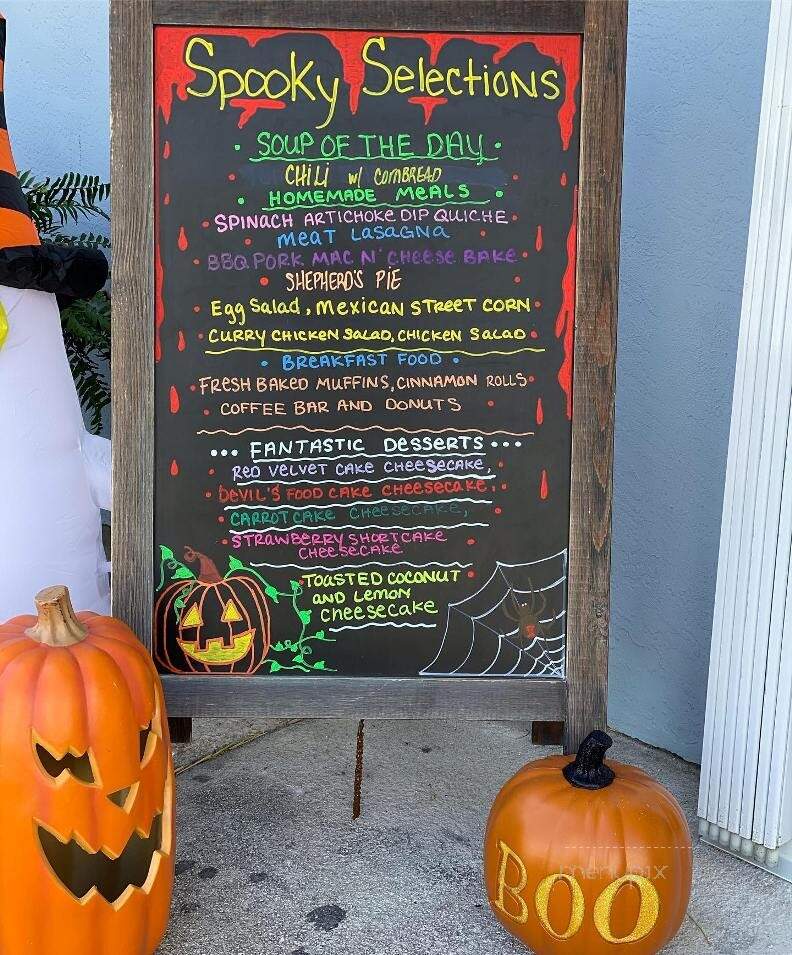 Spooky Selections
• SOUP OF THE DAY •
CHiLi w/ CORNBREAD
• HOMEMADE MeALS •
• SPINACH ARTICHOKE DIP QUICHE •
meat LasaGNa
• BBQ PORK MAC N' CHEESE BAKE •
• SHEPHERD'S PIE •
Egg Salad, Mexican STREET CORN
CURRY CHICKEN SALAD, CHICKEN SALAD
• BREAKFAST FOOD •
• FRESH BAKED MUFFINS, CINNAMON ROLLS •
• COFFEE BAR AND DONUTS •
••• FANTASTIC DESSERTS •••
• RED VELVET CAKE CHEESECAKE, •
• DEVIL'S FOOD CAKE CHEESECAKE, •
• CARROT CAKE CHEESECAKE, •
• STRAWBERRY SHORTCAKE •
CHEESECAKE
• TOASTED COCONUT •
AND LEMON
CHeesecake
BOO
menupix